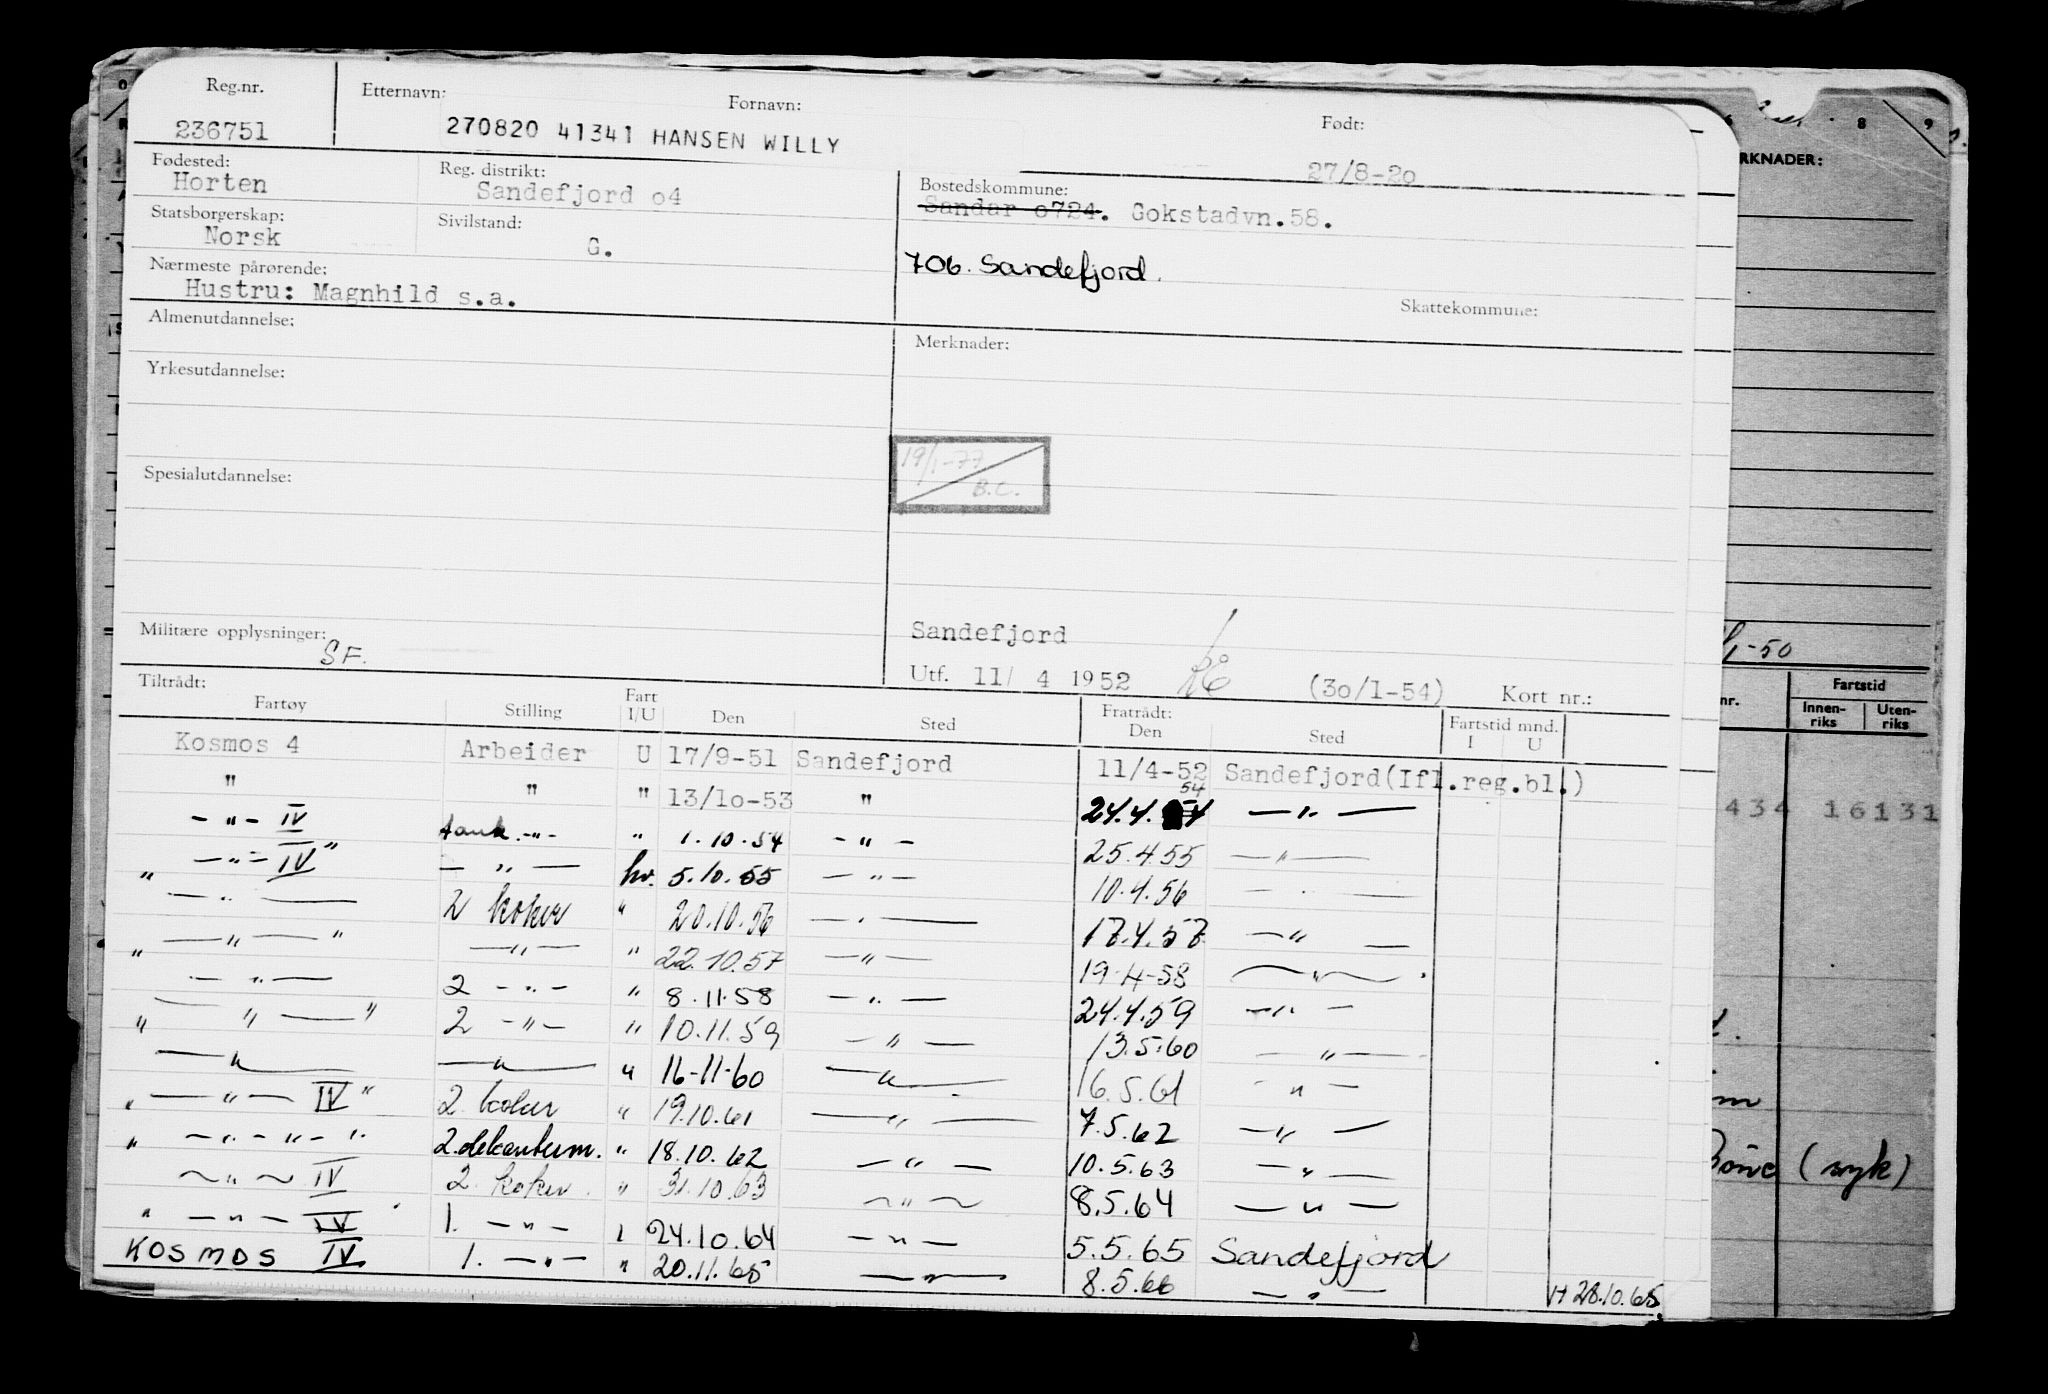 Reg.nr. Etternavn: Fornavn: Født:
236751 270820 41341 HANSEN WILLY 27/8-2o
Fødested: Reg. distrikt: Bostedskommune:
Horten Sandefjord o4 Sandar o724. Gokstadvn.58.
Statsborgerskap: Sivilstand:
Norsk G.
706. Sandefjord.
Nærmeste pårørende:
Hustru: Magnhild s.a.
Skattekommune:
Almenutdannelse: Merknader:
Yrkesutdannelse:
19/1-77
B.C.
Spesialutdannelse:
Militære opplysninger: Sandefjord
SF.
Utf. 11/ 4 1952 (3o/1-54) Kort nr.:
Tiltrådt: Fratrådt:
Fartøy Stilling Fart I/U Den Sted Den Sted Fartstid mnd. I U
Kosmos 4 Arbeider U 17/9-51 Sandefjord 11/4-52 Sandefjord(Ifl.reg.bl.)
" " " 13/1o-53 " 24.4.54 — " —
- " - IV tank. -"- " 1.10.54 - " - 25.4.55 — " —
" — " — IV " — " — hv. 5.10.55 — " — 10.4.56 — " —
— " — 2 koker " 20.10.56 — " — 17.4.57 — " —
" — " — " — " — " 22.10.57 — " — 19-4-58 — " —
— " — 2 - " - " 8.11.58 — " — 24.4.59 — " —
" — " — " 2 - " - " 10.11.59 — " — 13.5.60 — " —
— " — — " — " 16-11-60 — " — 16.5.61 - " -
" — " — IV " 2. koker " 19.10.61 — " — 7.5.62 — " —
" - " - " - " 2. dekanterm. " 18.10.62 — " — 10.5.63 — " —
~ " ~ IV 2. koker. " 31.10.63 ~ " ~ 8.5.64 — " —
" — " — IV 1. - " - " 24.10.64 — " — 5.5.65 Sandefjord
KOSMOS IV 1. — " — " 20.11.65 — " — 8.5.66 — " —
H 28.10.65.
8 9
RKNADER:
1-50
nr. Fartstid
Innenriks Utenriks
434 16131
(syk)